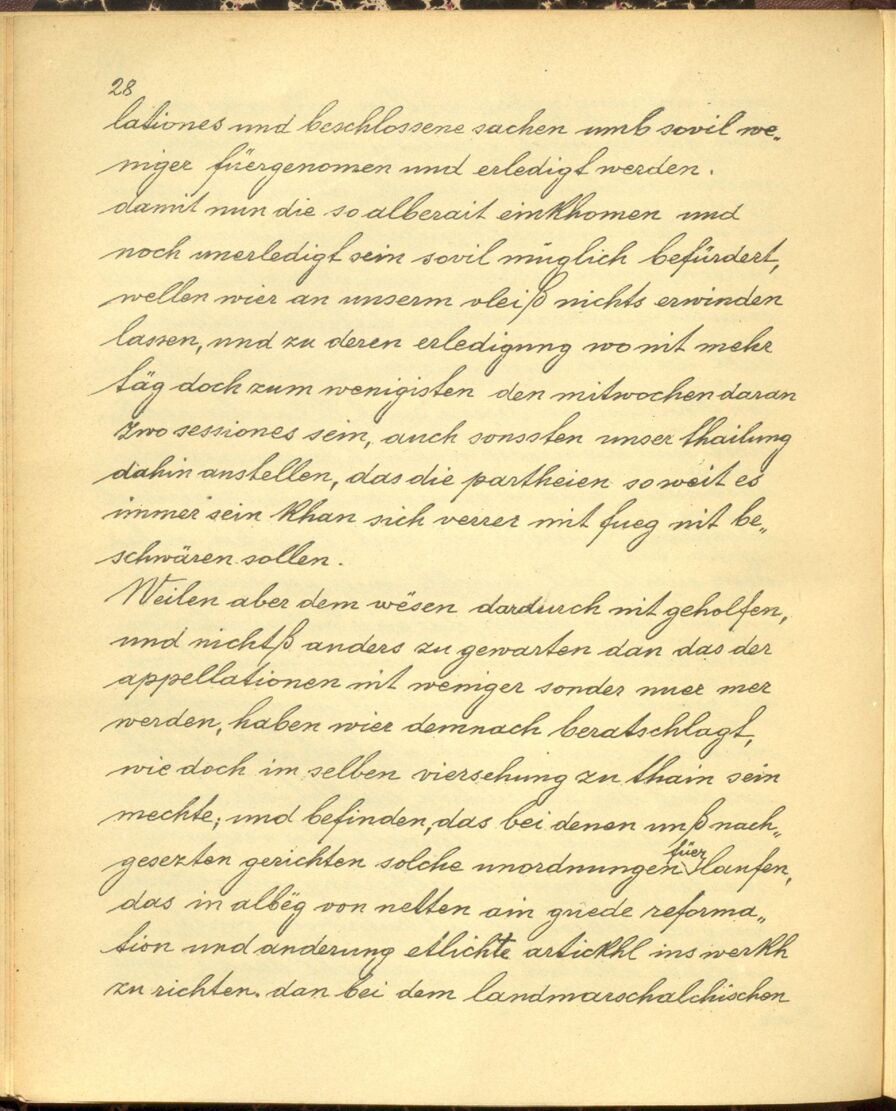 28
lationes und beschlossene sachen umb sovil we„
niger füergenomen und erledigt werden.
damit nun die so alberait einkhomen und
noch unerledigt sein sovil müglich befürdert,
wellen wier an unserm vleiß nichts erwinden
lassen, und zu deren erledigung wo nit mehr
täg doch zum wenigisten den mitwochen daran
zwo sessiones sein, auch sonssten unser thailung
dahin anstellen, das die partheien soweit es
immer sein khan sich verrer mit fueg nit be„
schwären sollen.
Weilen aber dem wësen dardurch nit geholfen,
und nichtß anders zu gewarten dan das der
appellationen nit weniger sonder nuer mer
werden, haben wier demnach beratschlagt,
wie doch im selben viersehung zu thain sein
mechte; und befinden, das bei denen unß nach„
gesezten gerichten solche unordnungen füer laufen,
das in albëg von netten ain guede reforma„
tion und anderung etlichte artickhl ins werkh
zu richten. dan bei dem landmarschalchischen